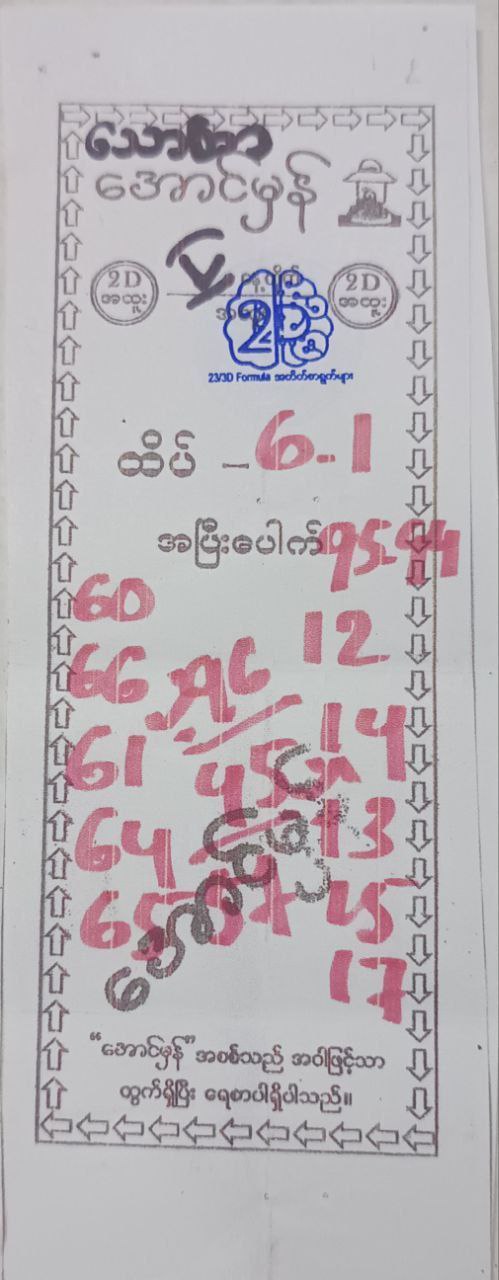 သောကြာ
အောင်မှန်
2D
အထူး
2D
အထူး
2D
23/3D Formula အတိတ်စာရွက်များ
ထိပ် - 6-1
အပြီးပေါက် 95-94
60
12
66
14
61
45
64
13
65
17
အောင်မှန်
“အောင်မှန်” အစစ်သည် အဝါဖြင့်သာ
ထွက်ရှိပြီး ရေစာပါရှိပါသည်။